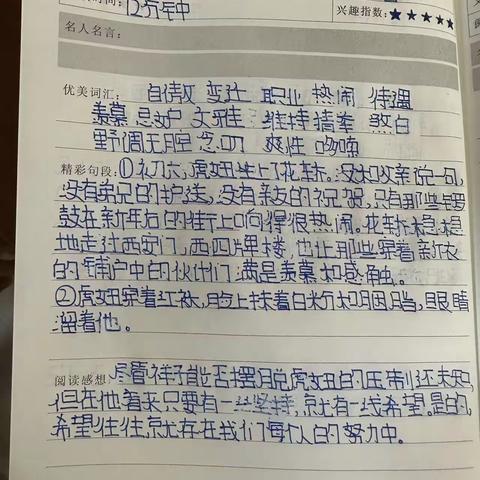 时间：12分钟
兴趣指数：★★★★★
名人名言：
优美词汇： 自傲 变迁 职业 热闹 待遇
羡慕 忌妒 文雅 维持 精拳 煞白
野调无腔 念叨 爽性 哆嗦
精彩句段：①初六，虎妞坐上了花轿。没和父亲说一句，
没有弟兄的护送，没有亲友的祝贺，只有那些锣
鼓在新年后的街上响得很热闹。花轿稳稳
地走过西安门，西四牌楼，也让那些穿着新衣
的铺户中的伙计们，满是羡慕和感触。
②虎妞穿着红袄，脸上抹着白粉和胭脂，眼睛
溜着他。
阅读感想：尽管祥子能否摆脱虎妞的压制还未知，
但在他看来只要有一丝坚持，就有一线希望。是的，
希望往往就存在我们每个人的努力中。